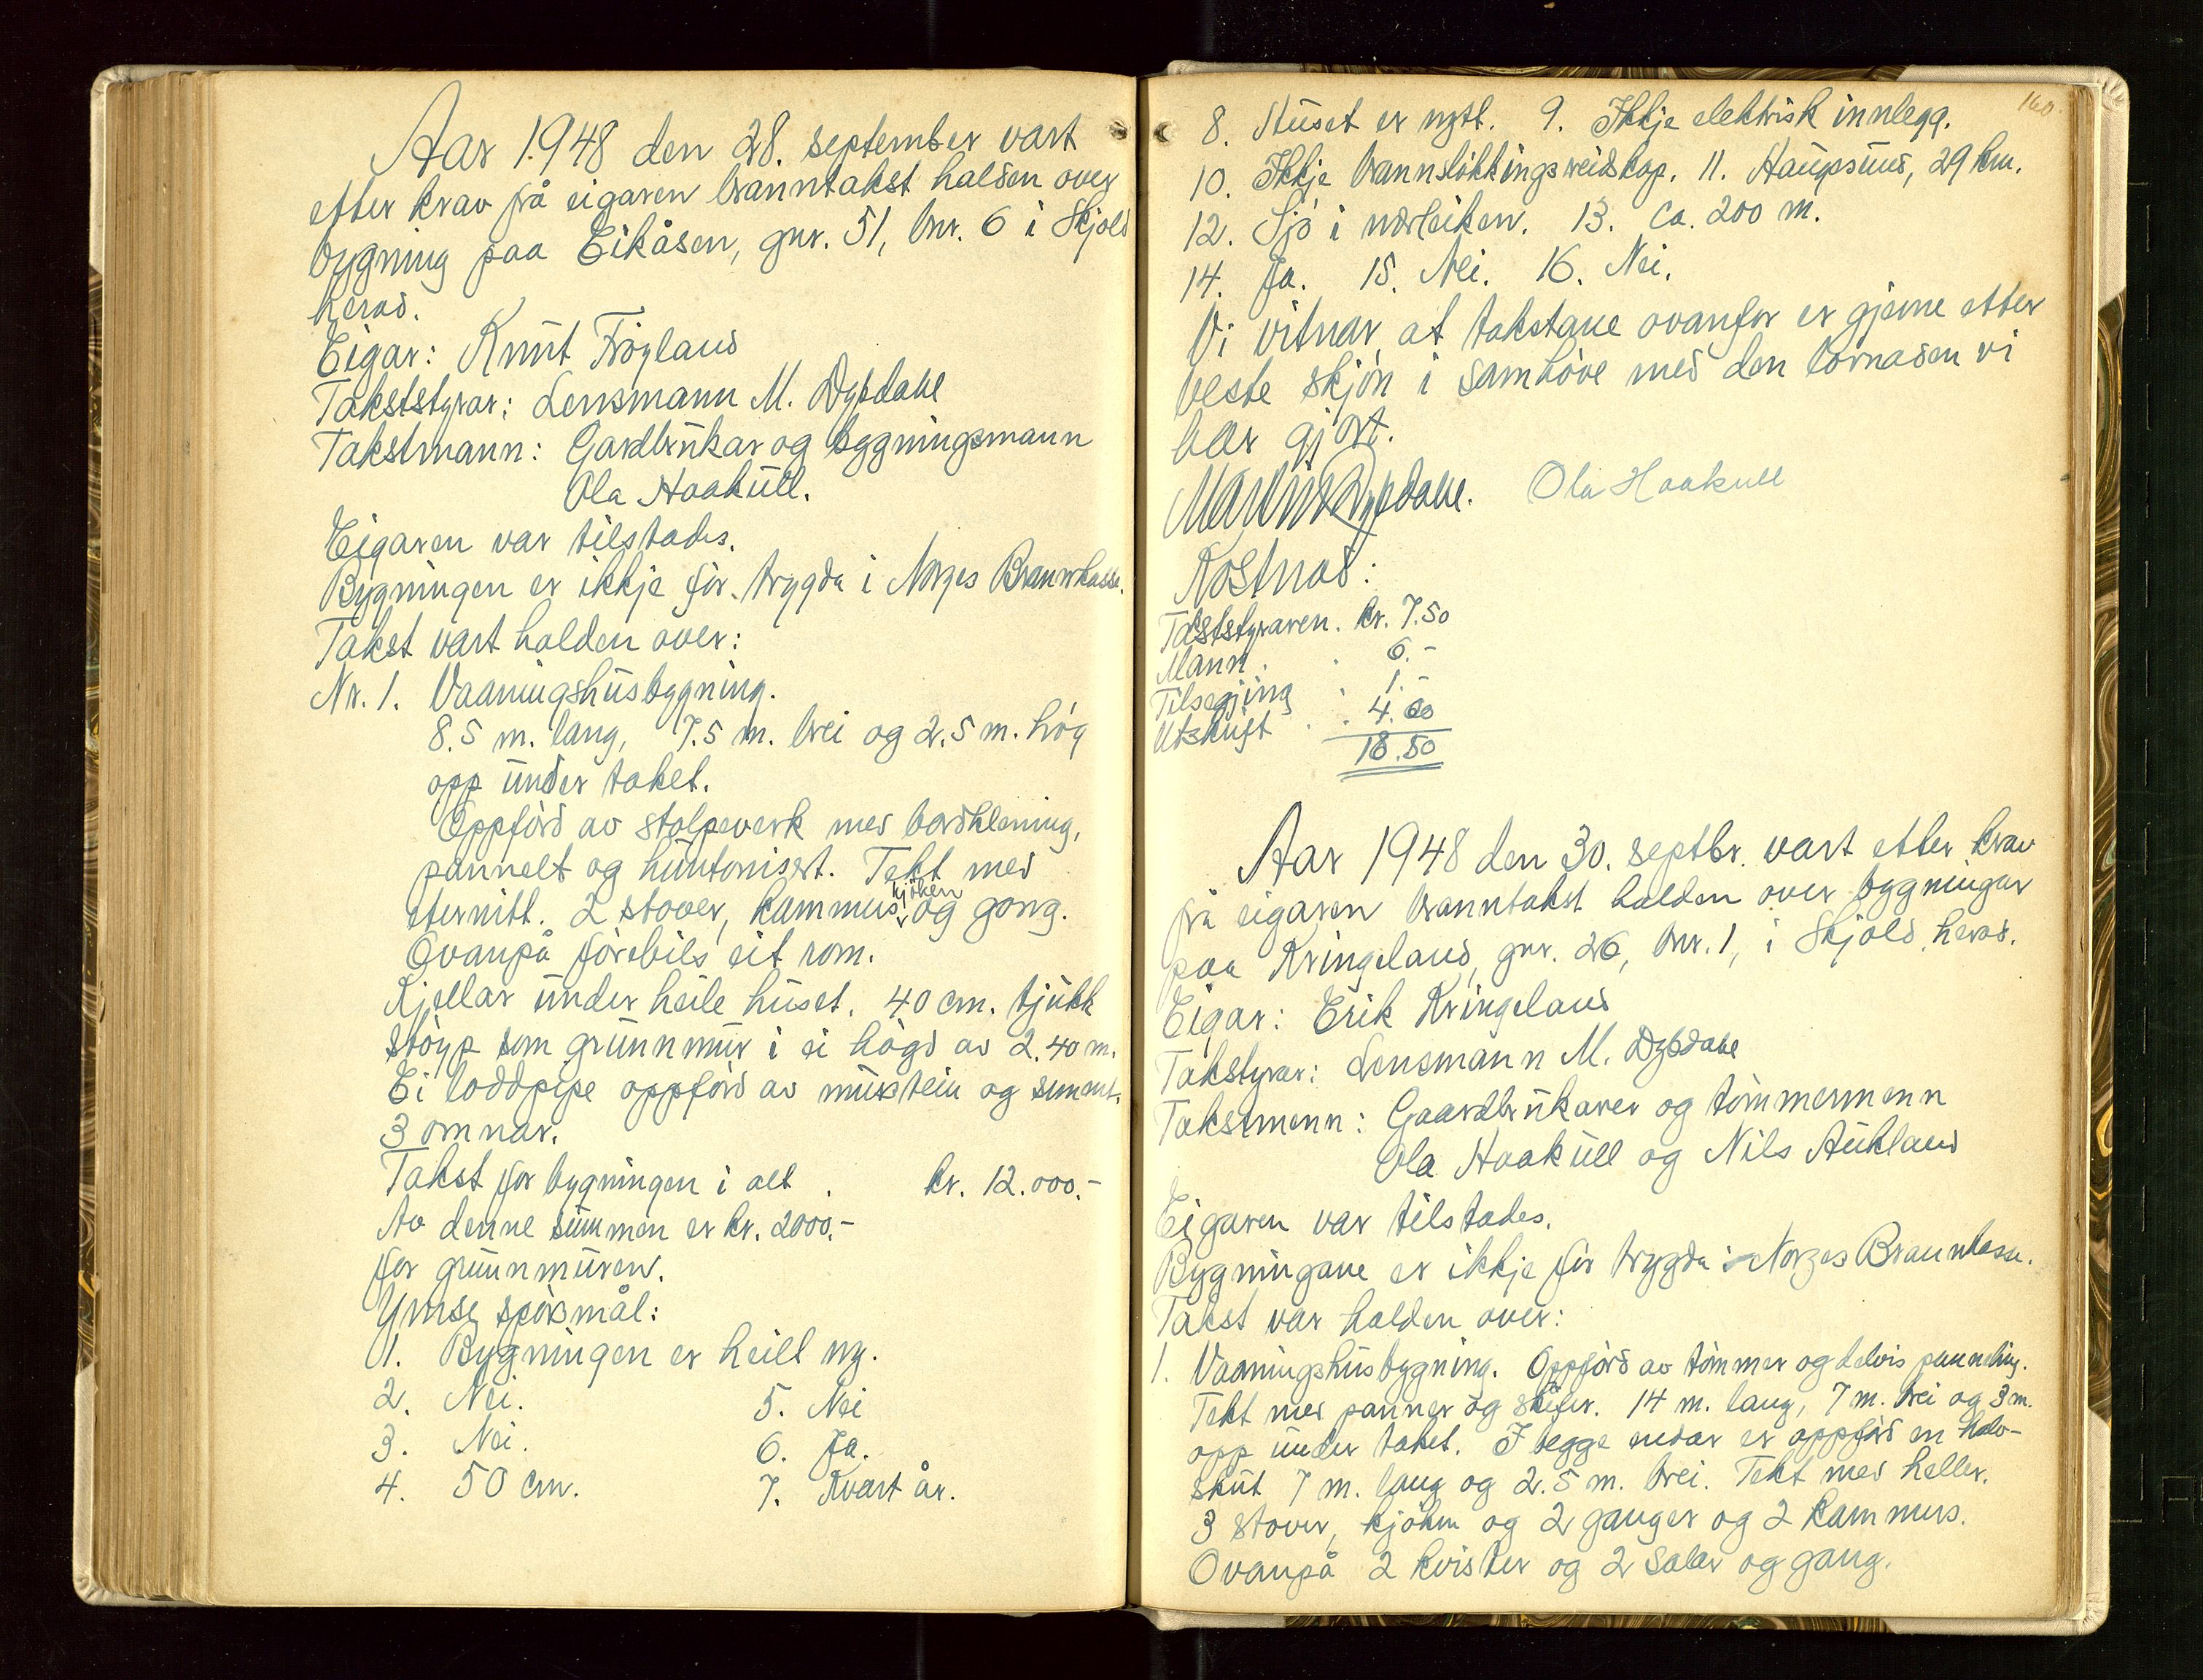 Aar 1948 den 28. september vart
efter krav frå eigaren branntakst halden over
bygning paa Eikåsen, gnr. 51, bnr. 6 i Skjold
herad.
Eigar: Knut Fröyland
Takststyrar: Lensmann M. Dybdahl
Takstmann: Gardbrukar og bygningsmann
Ola Haakull.
Eigaren var tilstades.
Bygningen er ikkje før trygda i Norges Brannkasse.
Takst vart halden over:
Nr. 1. Vaaningshusbygning.
8.5 m. lang, 7.5 m. brei og 2.5 m. høg
opp under taket.
Oppförd av stolpeverk med bordkledning,
pannelt og huntonisert. Tekt med
eternitt. 2 stover, kammers, kjöken og gong.
Ovanpå förebils eit rom.
Kjellar under heile huset. 40 cm. tjukk
støyp som grunnmur i ei högd av 2.40 m.
Ei loddpipe oppförd av murstein og sement.
3 omnar.
Takst for bygningen i alt . kr. 12.000.-
Av denne summen er kr. 2000.-
for grunnmuren.
Ymse spörsmål:
1. Bygningen er heilt ny.
2. Nei. 5. Nei
3. Nei. 6. Ja.
4. 50 cm. 7. Kvart år.
160.
8. Huset er nytt. 9. Ikkje elektrisk innlegg.
10. Ikkje brannslökkingsreidskap. 11. Haugesund, 29 km.
12. Sjö i nærleiken. 13. ca. 200 m.
14. Ja. 15. Nei. 16. Nei.
Vi vitnar at takstane ovanfor er gjerne etter
beste skjön i samhöve med den lovnaden vi
har gjort.
Martin Dybdahl. Ola Haakull
Kostnad:
Taststyraren. kr. 7.50
Mann . . 6.-
Tilsegjing . 1.-
Utskrift . . 4.00
18.50
Aar 1948 den 30. septbr. vart etter krav
frå eigaren branntakst halden over bygningar
paa Kringeland, gnr. 26, bnr. 1, i Skjold herad.
Eigar: Erik Kringeland
Takstyrar: Lensmann M. Dybdahl
Takstmenn: Gaardbrukarer og tömmermenn
Ola Haakull og Nils Aukland
Eigaren var tilstades.
Bygningane er ikkje för trygda i Norges Brannkasse.
Takst var halden over:
1. Vaaningshusbygning. Oppförd av tömmer og delvis panneling.
Tekt med panner og skifer. 14 m. lang, 7 m. brei og 3 m.
opp under taket. I begge endar er oppförd en halv-
skut 7 m. lang og 2.5 m. brei. Tekt med heller.
3 stover, kjöken og 2 ganger og 2 kammers.
Ovanpå 2 kvister og 2 saler og gang.